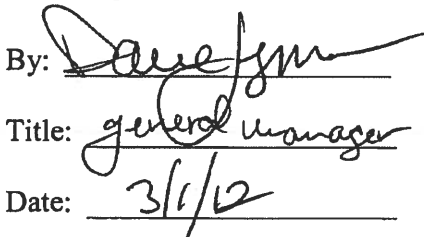 By: Dave
Title: general manager
Date: 3/1/12